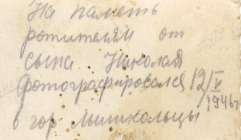 На память
родителям от
сына Николая
Фотографировался 12/V 1946г
в гор Мишкольцы